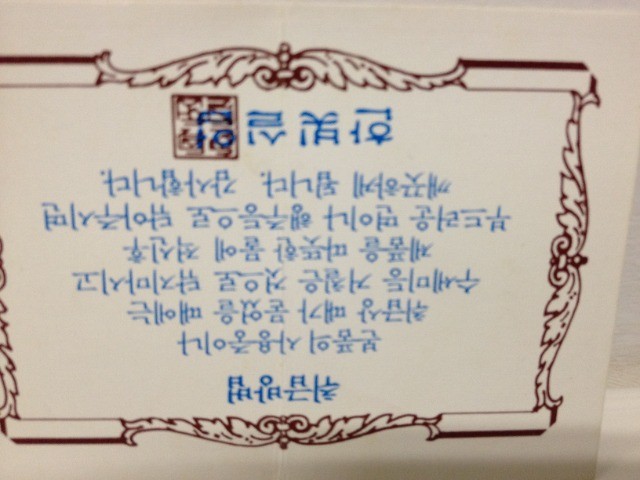 취급방법
본품의 사용중이나
취급상 때가 묻었을 때에는
수세미등 거칠은 것으로 닦지마시고
제품을 따뜻한 물에 적신후
부드러운 면이나 행주등으로 닦아주시면
깨끗하게 됩니다. 감사합니다.
한빛실업